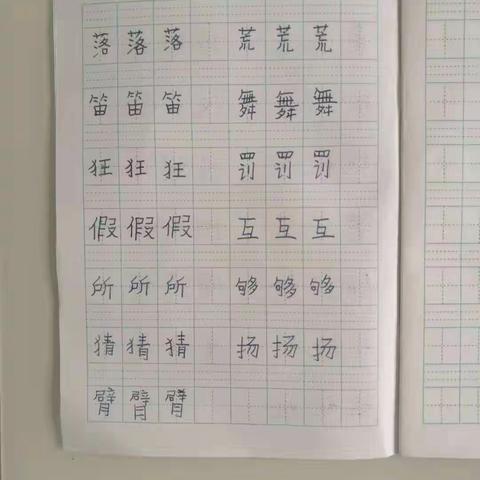 落落落 荒荒荒
笛笛笛 舞舞舞
狂狂狂 罚罚罚
假假假 互互互
所所所 够够够
猜猜猜 扬扬扬
臂臂臂